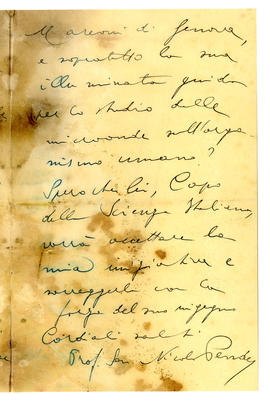 Marconi di Genova,
e sopratutto la sua
illuminata guida
per lo studio delle
microonde sull'orga-
nismo umano?
Spero che Lei, Capo
della Scienza Italiana,
vorrà accettare la
mia iniziativa e
sorreggerla con la
forza del suo ingegno
Cordiali saluti
Prof. Sen Nicola Pende